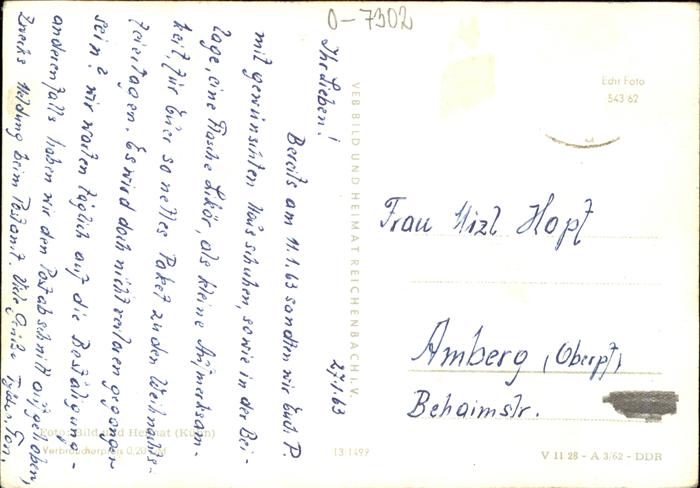 0-7302
27.1.63
Ihr Lieben!
Bereits am 11.1.63 sandten wir Euch P.
mit gewünschten Hausschuhen, sowie in der Bei-
lage, eine Flasche Likör, als kleine Aufmerksam-
keit für Euer so nettes Paket zu den Weihnachts-
feiertagen. Es wird doch nicht verloren gegangen
sein? Wir warten täglich auf die Bestätigung -
anderenfalls haben wir den Postabschnitt aufgehoben,
Zwecks Meldung beim Postamt. Viele Grüße
VEB BILD UND HEIMAT REICHENBACH I. V.
Echt Foto
543/62
Frau Mizl Hopf
Amberg (Oberpf)
Behaimstr.
Foto: Bild und Heimat (Kühn)
Verbraucherpreis 0,20 DM
13 1499
V 11 28 - A 3/62 - DDR